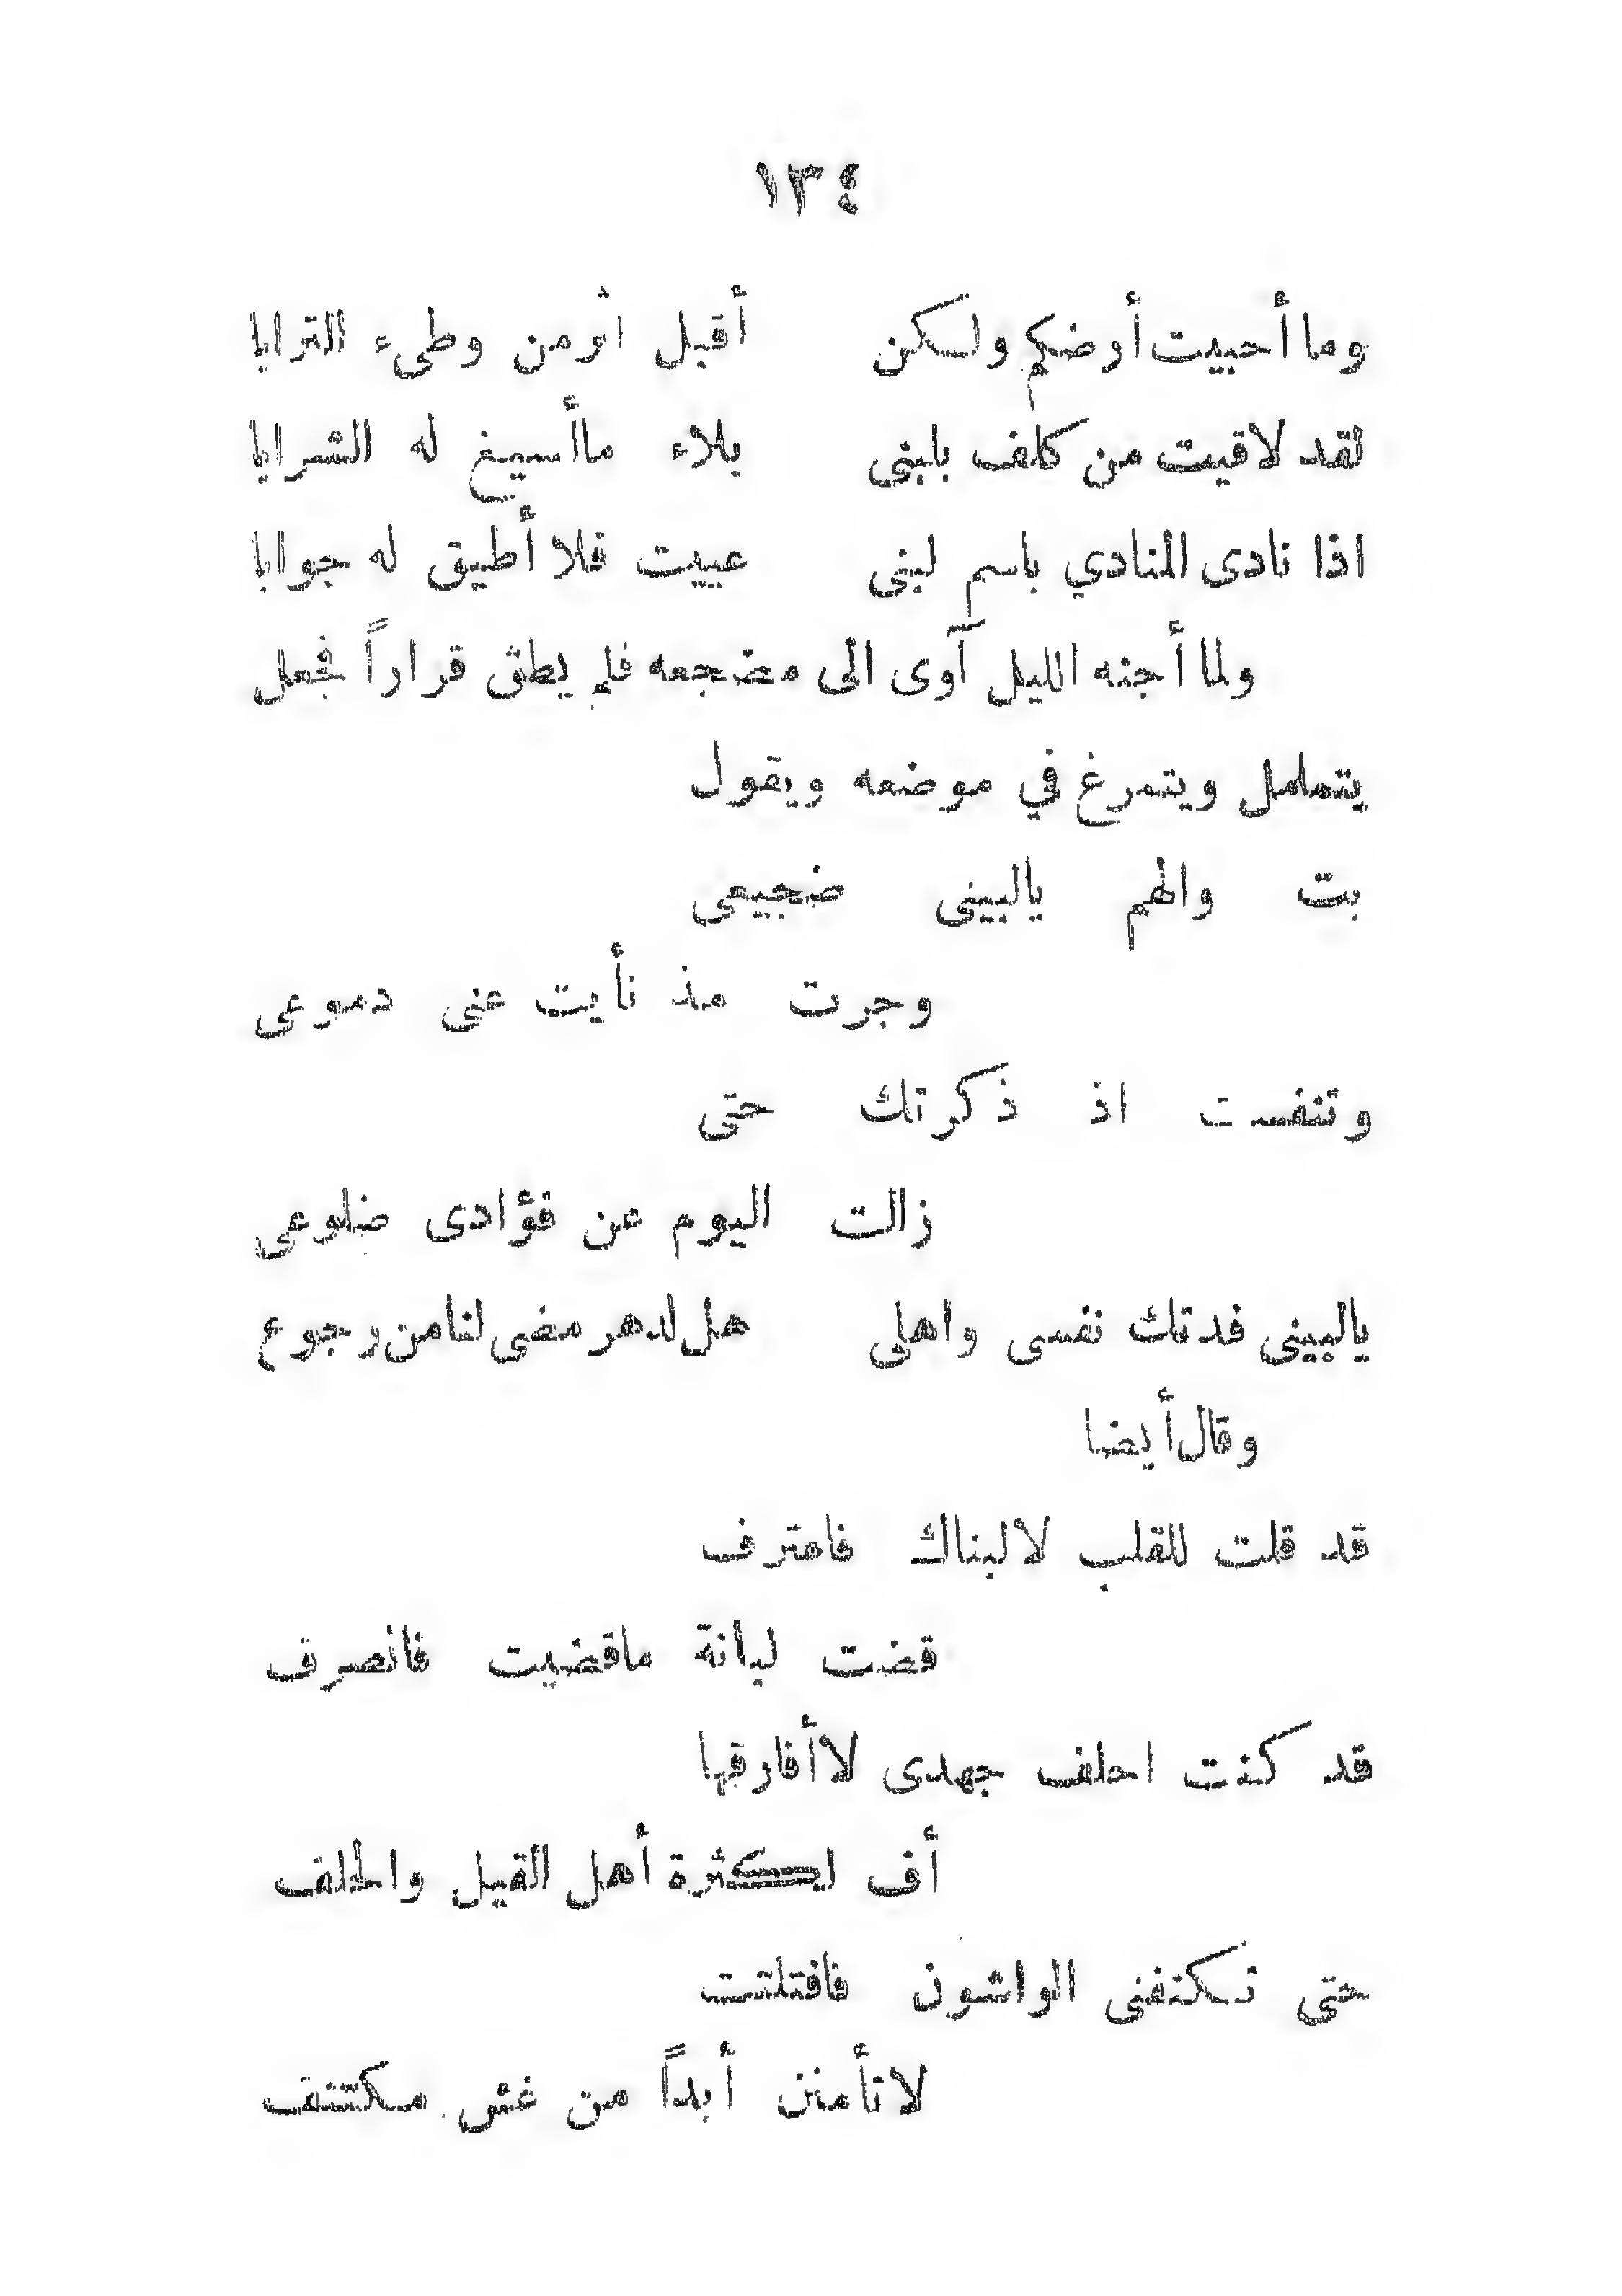 ١٣٤
وما أحببت أرضكم ولكن أقبل اثر من وطىء الترابا
لقد لاقيت من كلف بلبنى بلاء ماأسيغ له الشرابا
اذا نادى المنادي باسم لبنى عييت فلا أطيق له جوابا
ولما أجنه الليل آوى الى مضجعه فلم يطق قراراً فجعل
يتململ ويتمرغ في موضعه ويقول
بت والهم يالبينى ضجيعى
وجرت مذ نأيت عنى دموعى
وتنفست اذ ذكرتك حتى
زالت اليوم عن فؤادى ضلوعى
يالبينى فدتك نفسى واهلى هل لدهر مضى لنا من رجوع
وقال أيضا
قد قلت للقلب لا لبناك فاعترف
قضت لبانة ماقضيت فانصرف
قد كنت احلف جهدى لا أفارقها
أف لكثرة أهل القيل والحلف
حتى تكنفنى الواشون فافتلتت
لا تأمنن أبداً من غش مكتنف